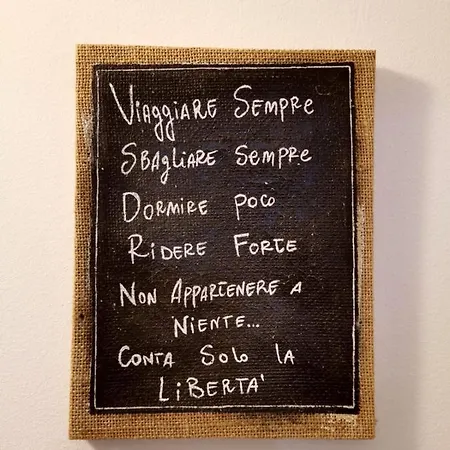 Viaggiare Sempre
Sbagliare Sempre
Dormire poco
Ridere Forte
Non Appartenere a
Niente...
Conta Solo la
Libertà'